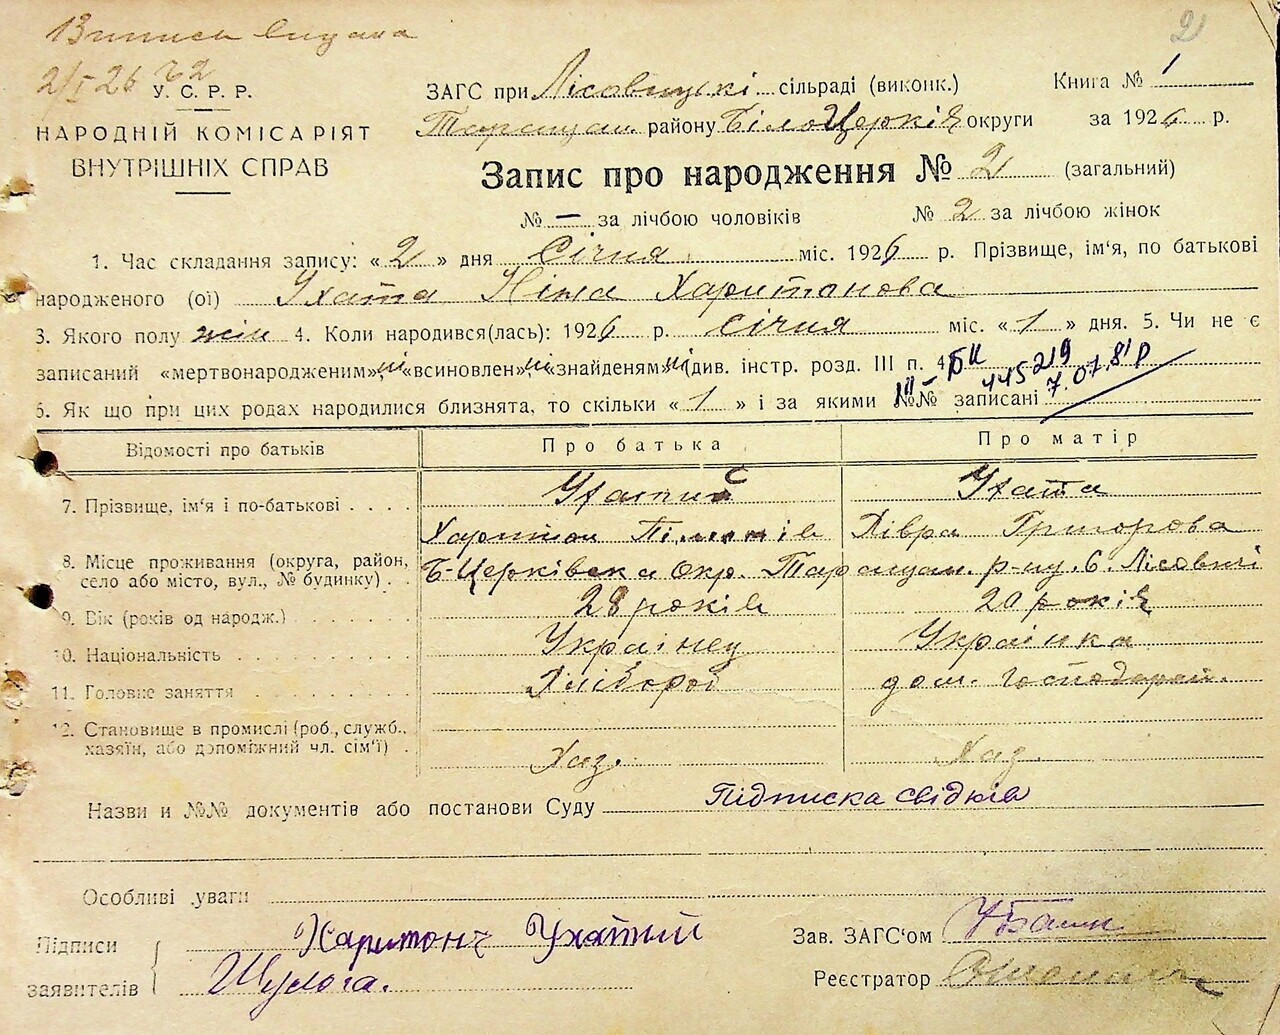 Випись видана
2/I 26 №2
2
У. С. Р. Р.
НАРОДНІЙ КОМІСАРІЯТ
ВНУТРІШНІХ СПРАВ
ЗАГС при Лісовицькі сільраді (виконк.) Книга № 1
Таращан. району БілоЦерків округи за 1926 р.
Запис про народження № 2 (загальний)
№ — за лічбою чоловіків № 2 за лічбою жінок
1. Час складання запису: « 2 » дня Січня міс. 1926 р. Прізвище, ім'я, по батькові
народженого (ої) Ухата Ніна Харитонова
3. Якого полу жін 4. Коли народився(лась): 1926 р. січня міс. « 1 » дня. 5. Чи не є
записаний «мертвонародженим», ні «всиновлен» ні «знайденям» ні (див. інстр. розд. III п. 4)
III-БК 445219 7.07.81р
6. Як що при цих родах народилися близнята, то скільки « 1 » і за якими №№ записані
Відомості про батьків Про батька Про матір
7. Прізвище, ім'я і по-батькові Ухатий Ухата
Харитон Хівра Григорова
8. Місце проживання (округа, район, село або місто, вул., № будинку) Б-Церківська Окр. Таращан. р-ну. с. Лісовичі
9. Вік (років од народж.) 28 років 20 років
10. Національність Українец Українка
11. Головне заняття Хлібороб дом. господарст.
12. Становище в промислі (роб., служб.,
хазяїн, або допоміжний чл. сім'ї) Хаз. Хаз
Назви и №№ документів або постанови Суду Підписка свідків
Особливі уваги
Підписи Харитонъ Ухатий Зав. ЗАГС'ом
заявителів Реєстратор